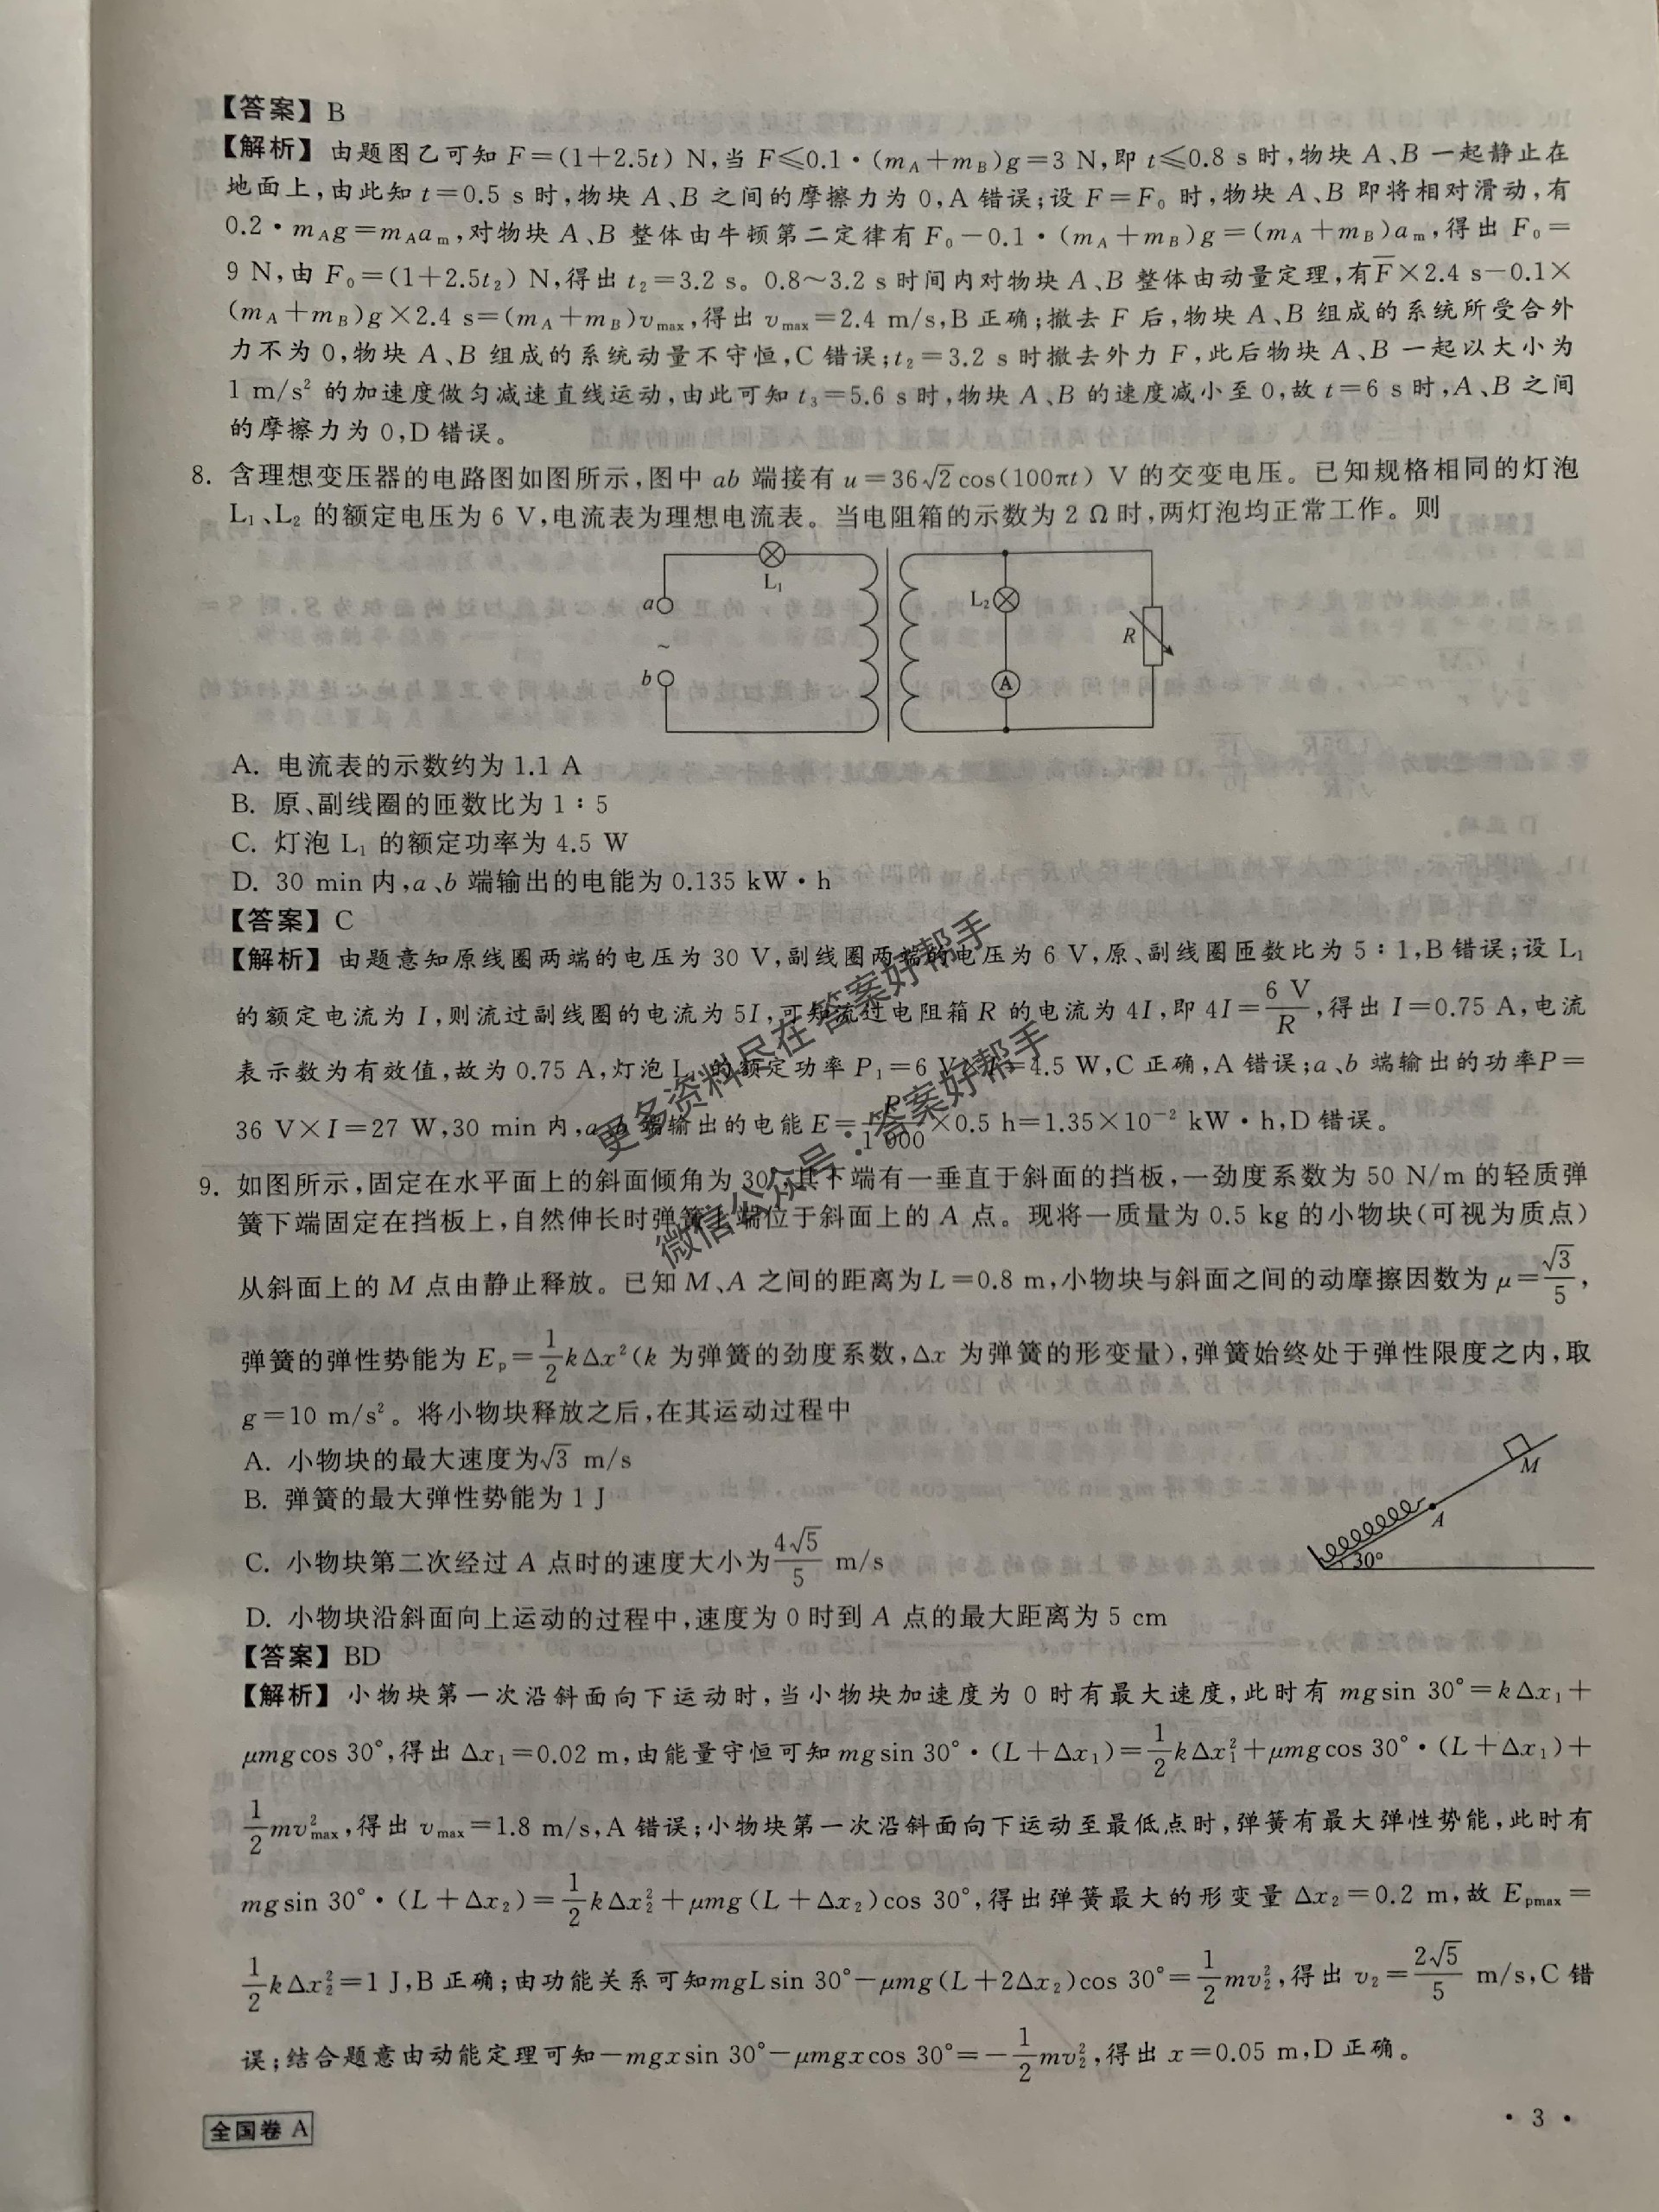 【答案】B
【解析】由题图乙可知 F=(1+2.5t) N,当 F≤0.1·(mA+mB)g=3 N,即 t≤0.8 s 时,物块 A、B 一起静止在
地面上,由此知 t=0.5 s 时,物块 A、B 之间的摩擦力为 0,A 错误;设 F=F₀ 时,物块 A、B 即将相对滑动,有
0.2·mAg=mAam,对物块 A、B 整体由牛顿第二定律有 F₀-0.1·(mA+mB)g=(mA+mB)am,得出 F₀=
9 N,由 F₀=(1+2.5t₂) N,得出 t₂=3.2 s。0.8~3.2 s 时间内对物块 A、B 整体由动量定理,有F̄×2.4 s-0.1×
(mA+mB)g×2.4 s=(mA+mB)vmax,得出 vmax=2.4 m/s,B 正确;撤去 F 后,物块 A、B 组成的系统所受合外
力不为 0,物块 A、B 组成的系统动量不守恒,C 错误;t₂=3.2 s 时撤去外力 F,此后物块 A、B 一起以大小为
1 m/s² 的加速度做匀减速直线运动,由此可知 t₃=5.6 s 时,物块 A、B 的速度减小至 0,故 t=6 s 时,A、B 之间
的摩擦力为 0,D 错误。
8. 含理想变压器的电路图如图所示,图中 ab 端接有 u=36√2cos(100πt) V 的交变电压。已知规格相同的灯泡
L₁、L₂ 的额定电压为 6 V,电流表为理想电流表。当电阻箱的示数为 2 Ω 时,两灯泡均正常工作。则
L₁
a
~
b
L₂
A
R
A. 电流表的示数约为 1.1 A
B. 原、副线圈的匝数比为 1∶5
C. 灯泡 L₁ 的额定功率为 4.5 W
D. 30 min 内,a、b 端输出的电能为 0.135 kW·h
【答案】C
【解析】由题意知原线圈两端的电压为 30 V,副线圈两端的电压为 6 V,原、副线圈匝数比为 5∶1,B 错误;设 L₁
的额定电流为 I,则流过副线圈的电流为 5I,可知流过电阻箱 R 的电流为 4I,即 4I=6 V/R,得出 I=0.75 A,电流
表示数为有效值,故为 0.75 A,灯泡 L₁ 的额定功率 P₁=6 V×I=4.5 W,C 正确,A 错误;a、b 端输出的功率P=
36 V×I=27 W,30 min 内,a、b 端输出的电能 E=P/1 000×0.5 h=1.35×10⁻² kW·h,D 错误。
更多资料尽在答案好帮手
微信公众号:答案好帮手
9. 如图所示,固定在水平面上的斜面倾角为 30°,其下端有一垂直于斜面的挡板,一劲度系数为 50 N/m 的轻质弹
簧下端固定在挡板上,自然伸长时弹簧上端位于斜面上的 A 点。现将一质量为 0.5 kg 的小物块(可视为质点)
从斜面上的 M 点由静止释放。已知 M、A 之间的距离为 L=0.8 m,小物块与斜面之间的动摩擦因数为 μ=√3/5,
弹簧的弹性势能为 Ep=1/2kΔx²(k 为弹簧的劲度系数,Δx 为弹簧的形变量),弹簧始终处于弹性限度之内,取
g=10 m/s²。将小物块释放之后,在其运动过程中
A. 小物块的最大速度为√3 m/s
B. 弹簧的最大弹性势能为 1 J
C. 小物块第二次经过 A 点时的速度大小为4√5/5 m/s
D. 小物块沿斜面向上运动的过程中,速度为 0 时到 A 点的最大距离为 5 cm
M
A
30°
【答案】BD
【解析】小物块第一次沿斜面向下运动时,当小物块加速度为 0 时有最大速度,此时有 mgsin 30°=kΔx₁+
μmgcos 30°,得出 Δx₁=0.02 m,由能量守恒可知 mgsin 30°·(L+Δx₁)=1/2kΔx₁²+μmgcos 30°·(L+Δx₁)+
1/2mv²max,得出 vmax=1.8 m/s,A 错误;小物块第一次沿斜面向下运动至最低点时,弹簧有最大弹性势能,此时有
mgsin 30°·(L+Δx₂)=1/2kΔx₂²+μmg(L+Δx₂)cos 30°,得出弹簧最大的形变量 Δx₂=0.2 m,故 Epmax=
1/2kΔx₂²=1 J,B 正确;由功能关系可知mgLsin 30°-μmg(L+2Δx₂)cos 30°=1/2mv₂²,得出 v₂=2√5/5 m/s,C 错
误;结合题意由动能定理可知-mgxsin 30°-μmgxcos 30°=-1/2mv₂²,得出 x=0.05 m,D 正确。
全国卷 A
·3·